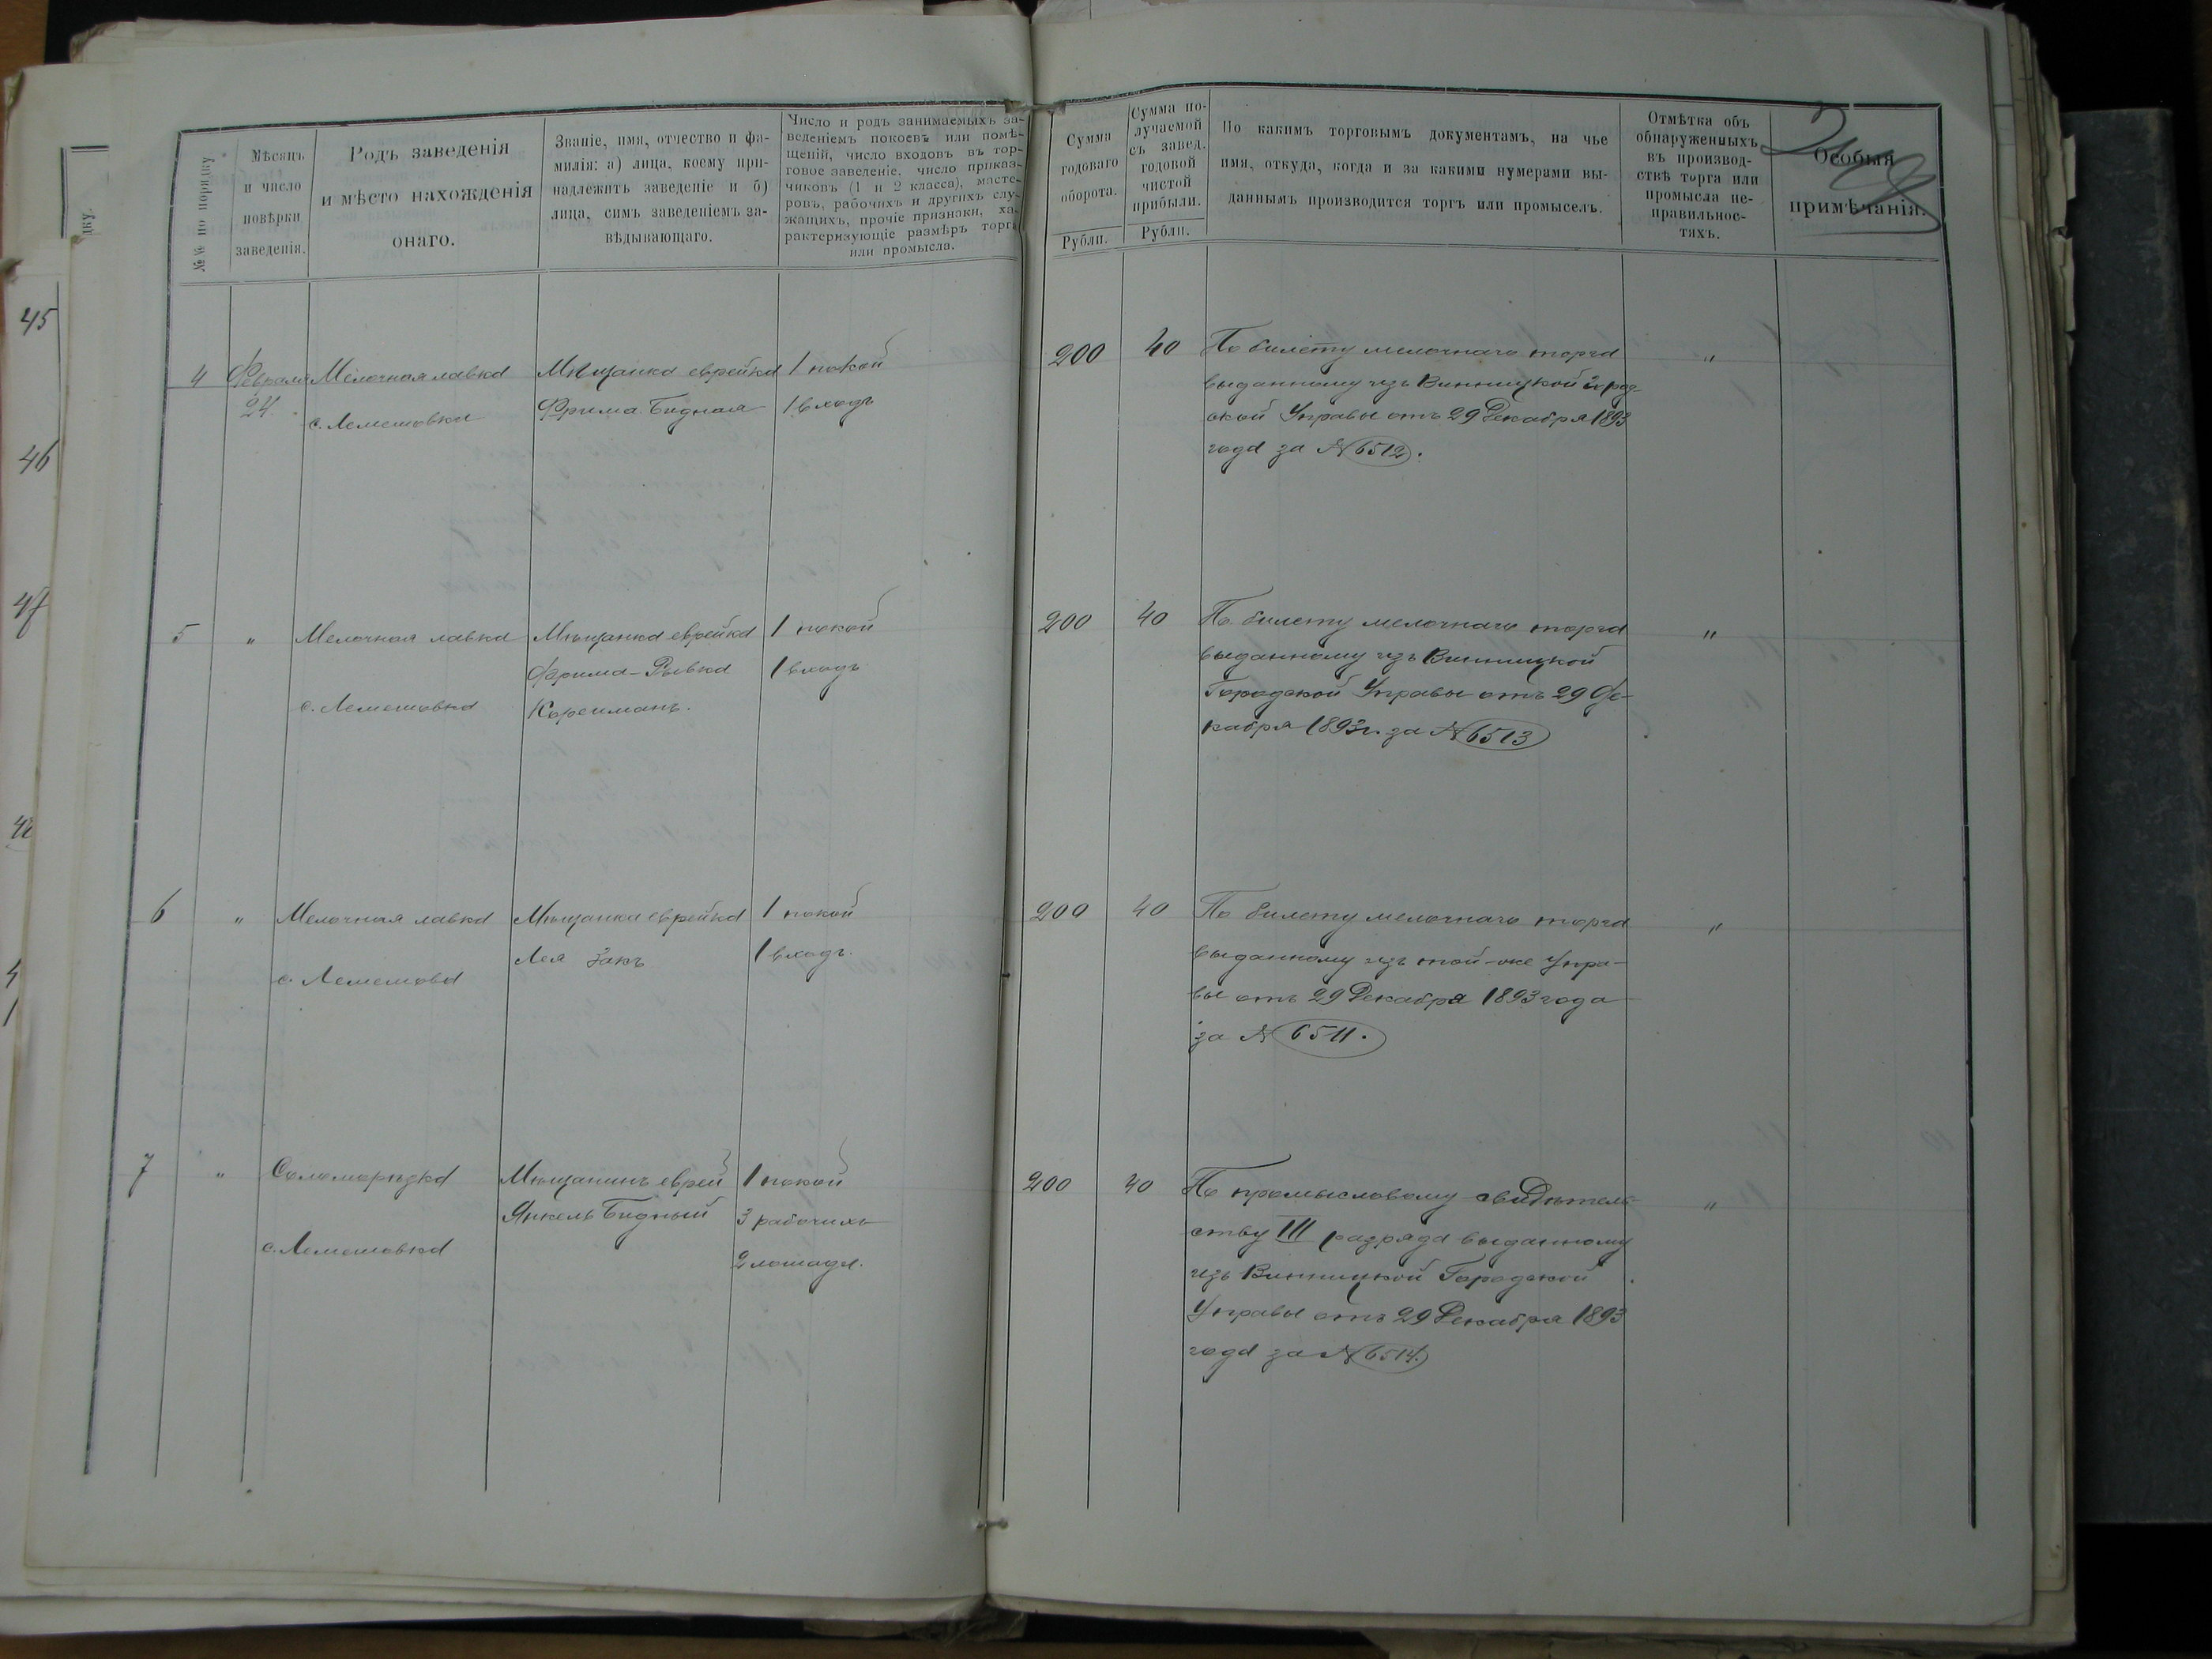 №№ по порядку
Мѣсяцъ
и число
повѣрки
заведенія.
Родъ заведенія
и мѣсто нахожденія
онаго.
Званіе, имя, отчество и фа-
милія: а) лица, коему при-
надлежитъ заведеніе и б)
лица, симъ заведеніемъ за-
вѣдывающаго.
Число и родъ занимаемыхъ за-
веденіемъ покоевъ или помѣ-
щеній, число входовъ въ тор-
говое заведеніе, число приказ-
чиковъ (1 и 2 класса), масте-
ровъ, рабочихъ и другихъ слу-
жащихъ, прочіе признаки, ха-
рактеризующіе размѣръ торга
или промысла.
Сумма
годоваго
оборота.
Рубли.
Сумма по-
лучаемой
съ завед.
годовой
чистой
прибыли.
Рубли.
По какимъ торговымъ документамъ, на чье
имя, откуда, когда и за какими нумерами вы-
даннымъ производится торгъ или промыселъ.
Отмѣтка объ
обнаруженныхъ
въ производ-
ствѣ торга или
промысла не-
правильнос-
тяхъ.
Особыя
примѣчанія.
4
Февраля
24
Мелочная лавка
с. Лемешовка
Мѣщанка еврейка
Фрима Бидная
1 покой
1 входъ
200
40
По билету мелочнаго торга
выданному изъ Винницкой город-
ской Управы отъ 29 Декабря 1893
года за № 6512.
"
5
"
Мелочная лавка
с. Лемешовка
Мѣщанка еврейка
Фрима-Рывка
1 покой
1 входъ
200
40
По билету мелочнаго торга
выданному изъ Винницкой
Городской Управы отъ 29 Де-
кабря 1893 г. за № 6513
"
6
"
Мелочная лавка
с. Лемешова
Мѣщанка еврейка
Лея Закъ
1 покой
1 входъ.
200
40
По билету мелочнаго торга
выданному изъ той-же Упра-
вы отъ 29 Декабря 1893 года
за № 6511.
"
7
"
с. Лемешовка
Мѣщанинъ еврей
Янкель Бидный
1 покой
3 рабочихъ
2 лошади.
200
40
По промысловому свидѣтель-
ству III разряда выданному
изъ Винницкой Городской
Управы отъ 29 Декабря 1893
года за № 6514.
"
45
46
47